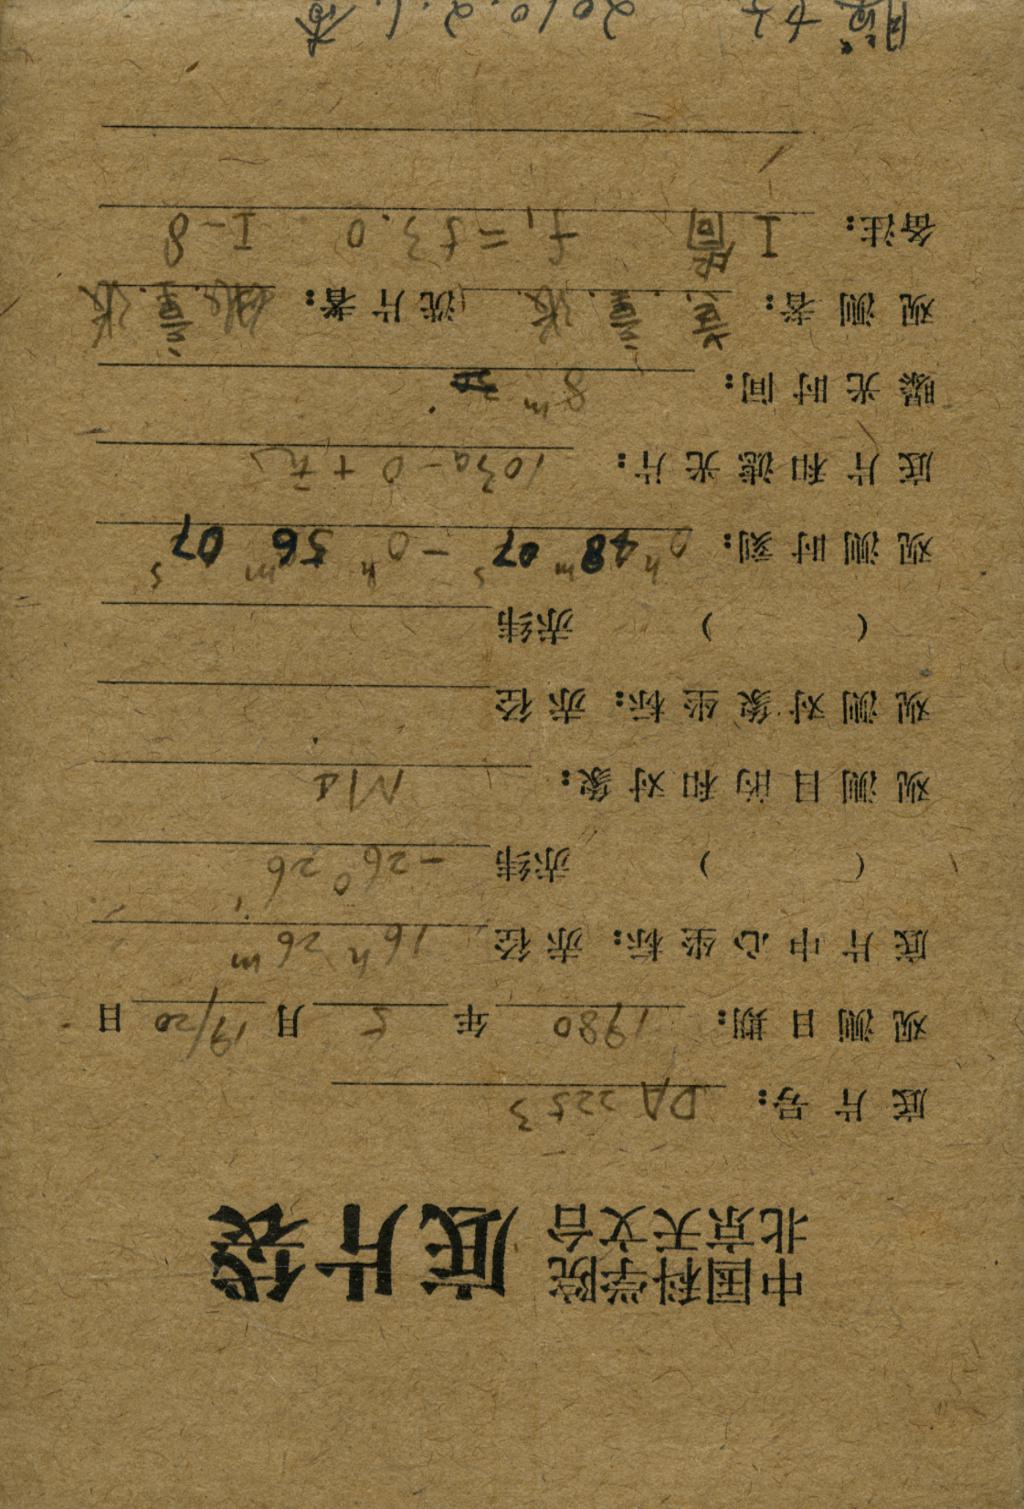 中国科学院
北京天文台
底片袋
底片号： DA 2253
观测日期： 1980 年 5 月 19/20 日
底片中心坐标：赤径 16h 26m
( ) 赤纬 -26° 26'
观测目的和对象： M4
观测对象坐标：赤径
( ) 赤纬
观测时刻： 0h 48m 07s - 0h 56m 07s
底片和滤光片： 103a-O + 无
曝光时间： 8m
观测者： 洗片者：
备注： I f₁ = 53.0 I-8
2010.2.1